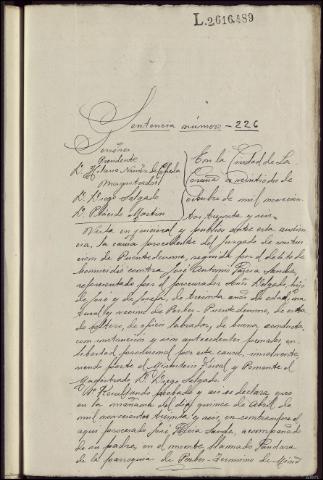 L.2616489
Sentencia número - 226
Señores
Presidente
D. Hilario Núñez de Cepeda
Magistrados
D. Diego Salgado
D. Plácido Martín
En la Ciudad de La
Coruña a veintidos de
octubre de mil novecien
tos treinta y seis.
Vista en juicio oral y público ante esta audien
cia, la causa procedente del Juzgado de instruc
cion de Puentedeume, seguida por el delito de
homicidio contra José Antonio
representado por el procurador Delgado, hijo
de José y de Josefa, de treinta años de edad, na
tural y vecino de Puentedeume, de estado
soltero, de oficio labrador, de buena conducta,
con instrucción y sin antecedentes penales, en
libertad provisional por esta causa,
siendo parte el Ministerio Fiscal y Ponente el
Magistrado D. Diego Salgado.
1º Resultando probado y así se declara, que
en la mañana del día quince de abril de
mil novecientos treinta y seis,
procesado José acompañado
de su padre, en el monte llamado
de la parroquia de